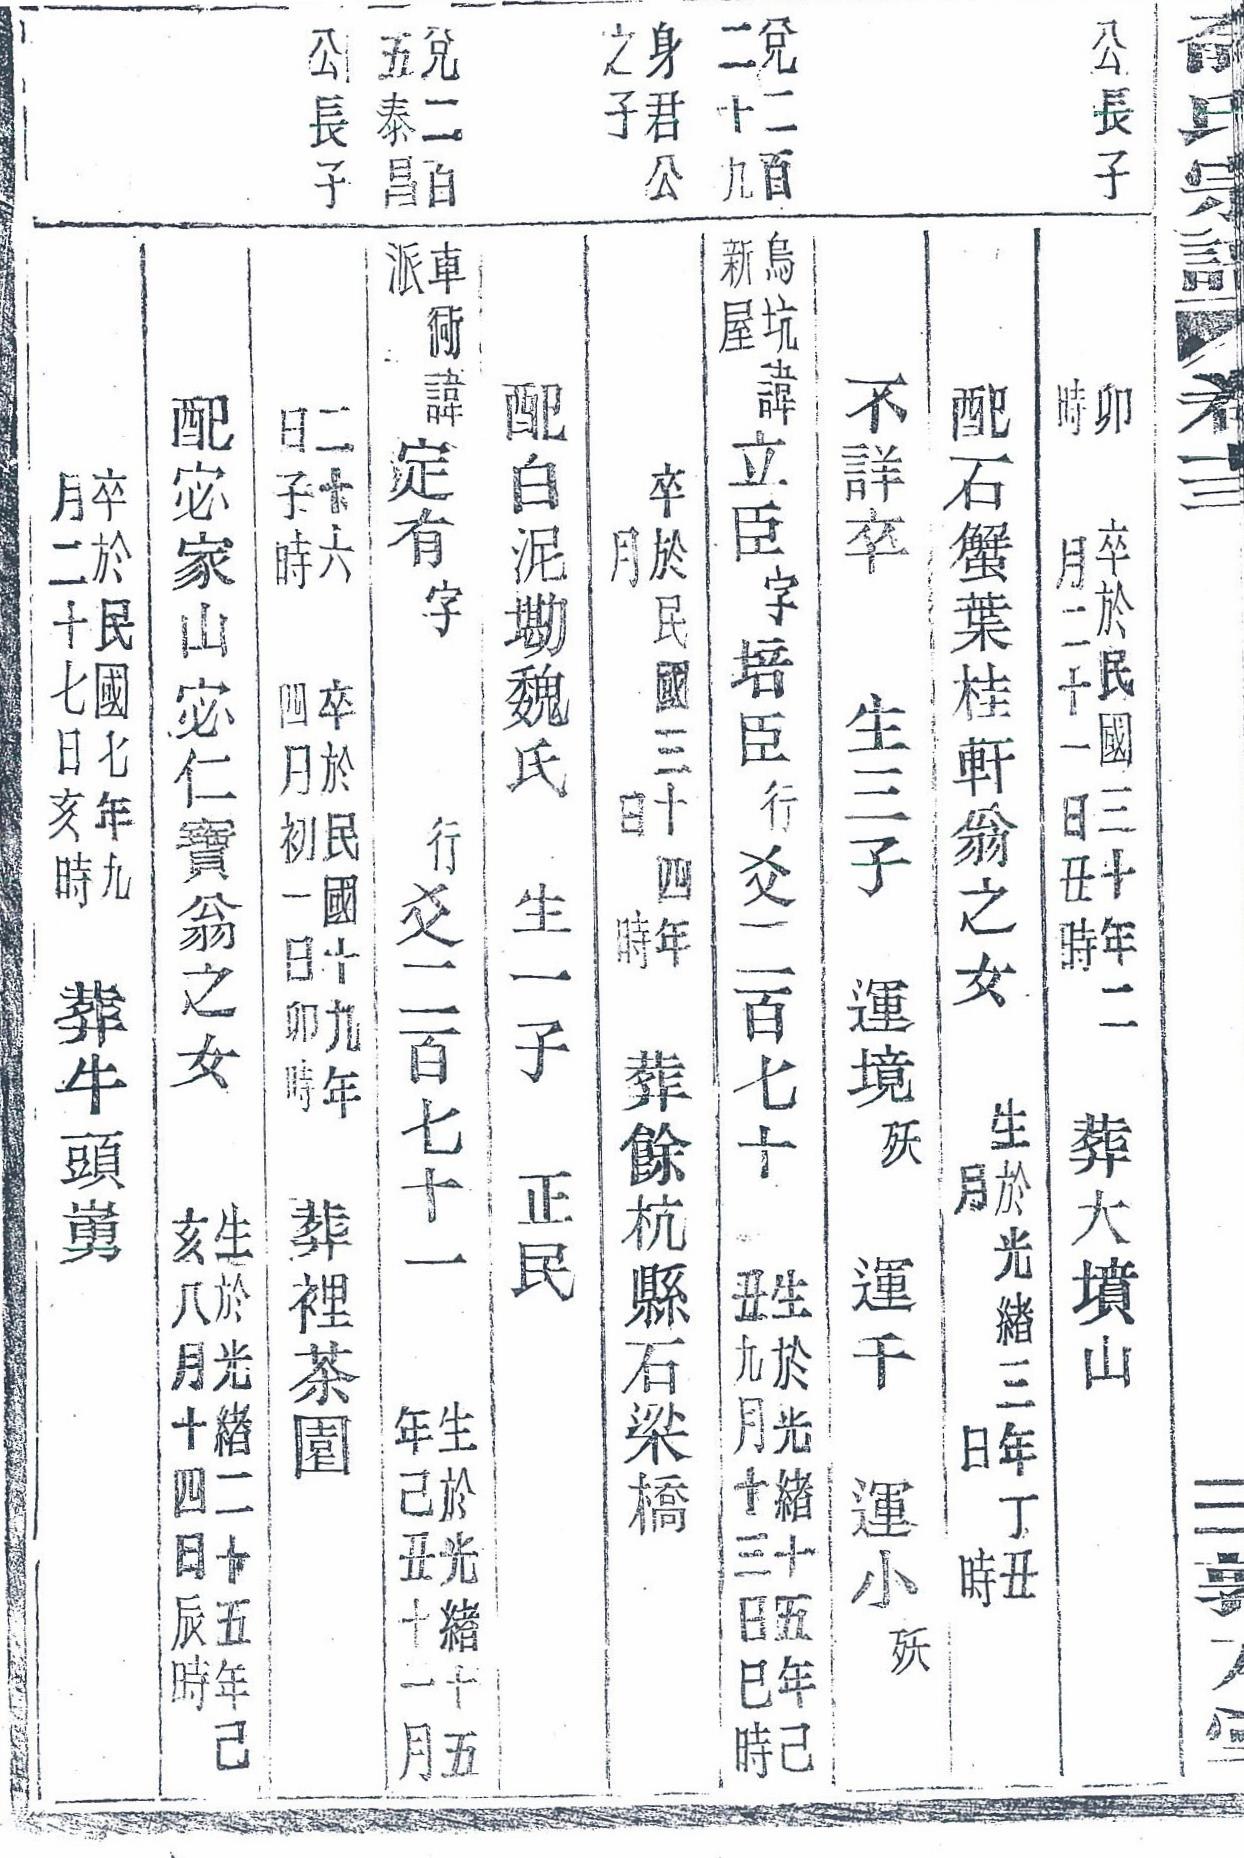 氏宗譜
公長子
卯
時
卒於民國三十年二
月二十一日丑時
葬大墳山
配石蟹葉桂軒翁之女
生於光緒三年丁丑
月 日 時
不詳卒 生三子 運境殀 運千 運小殀
兌二百
二十九
烏坑諱
新屋
立臣字培臣行爻一二百七十
生於光緒十五年己
丑九月十三日巳時
身君公
之子
卒於民國三十四年
月 日 時
葬餘杭縣石梁橋
配白泥墈魏氏 生一子 正民
兌二百
五泰昌
車衕諱
派
定有字 行爻一二百七十一
生於光緒十五
年己丑十一月
公長子
二十六
日子時
卒於民國十九年
四月初一日卯時
葬裡茶園
配宓家山宓仁寶翁之女
生於光緒二十五年己
亥八月十四日辰時
卒於民國七年九
月二十七日亥時
葬牛頭嶴